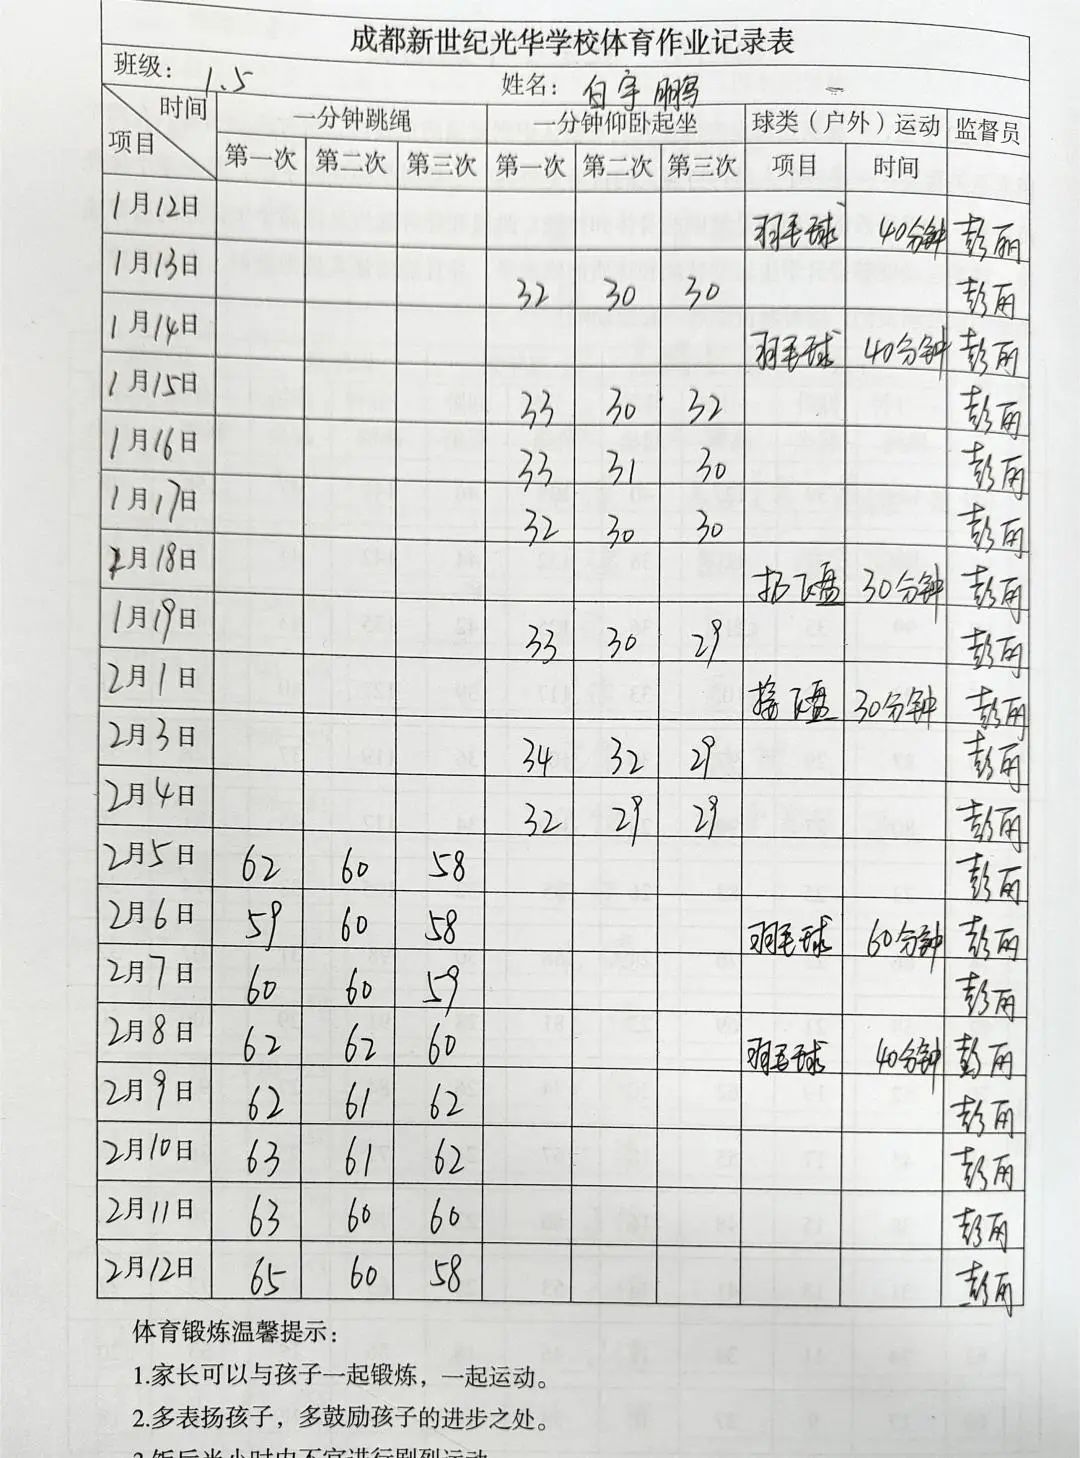 成都新世纪光华学校体育作业记录表
班级：1.5 姓名：白宇鹏
时间 项目 一分钟跳绳 一分钟仰卧起坐 球类（户外）运动 监督员
第一次 第二次 第三次 第一次 第二次 第三次 项目 时间
1月12日 羽毛球 40分钟 彭丽
1月13日 32 30 30 彭丽
1月14日 羽毛球 40分钟 彭丽
1月15日 33 30 32 彭丽
1月16日 33 31 30 彭丽
1月17日 32 30 30 彭丽
1月18日 扔飞盘 30分钟 彭丽
1月19日 33 30 29 彭丽
2月1日 接飞盘 30分钟 彭丽
2月3日 34 32 29 彭丽
2月4日 32 29 29 彭丽
2月5日 62 60 58 彭丽
2月6日 59 60 58 羽毛球 60分钟 彭丽
2月7日 60 60 59 彭丽
2月8日 62 62 60 羽毛球 40分钟 彭丽
2月9日 62 61 62 彭丽
2月10日 63 61 62 彭丽
2月11日 63 60 60 彭丽
2月12日 65 60 58 彭丽
体育锻炼温馨提示：
1.家长可以与孩子一起锻炼，一起运动。
2.多表扬孩子，多鼓励孩子的进步之处。
3.饭后半小时内不宜进行剧烈运动